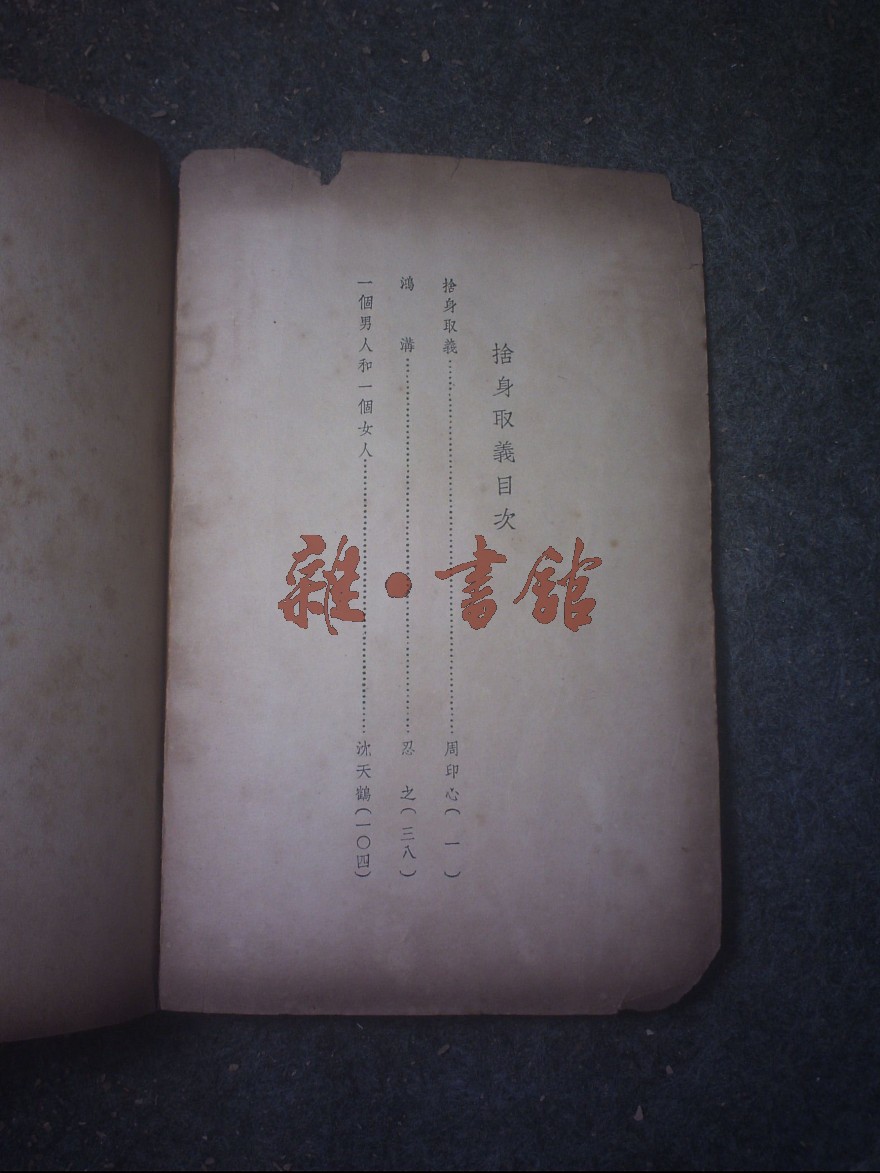 捨身取義目次
捨身取義……周印心(一)
鴻溝……忍之(三八)
一個男人和一個女人……沈天鶴(一〇四)
雜·書館